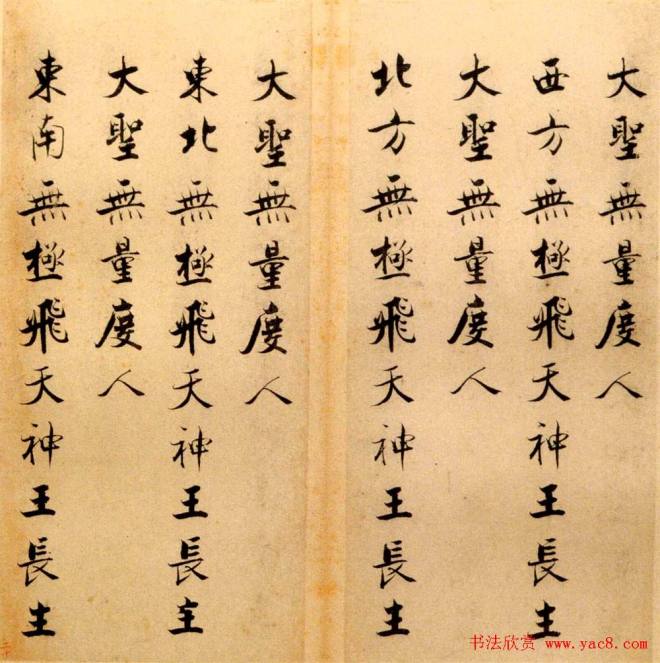 大聖無量度人
西方無極飛天神王長生
大聖無量度人
北方無極飛天神王長生
大聖無量度人
東北無極飛天神王長生
大聖無量度人
東南無極飛天神王長生
书法欣赏 www.yac8.com